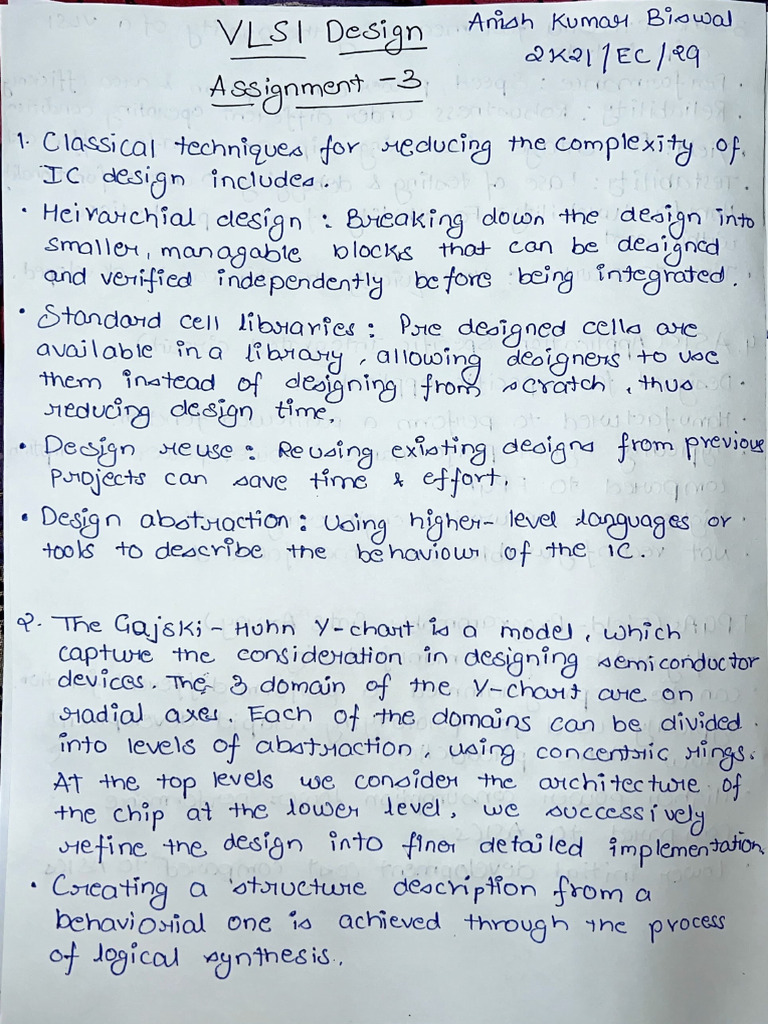 VLSI Design
Anish Kumar Biswal
2K21/EC/29
Assignment -3
1. Classical techniques for reducing the complexity of
IC design includes.
• Heirarchial design : Breaking down the design into
smaller, managable blocks that can be designed
and verified independently before being integrated.
• Standard cell libraries : Pre designed cells are
available in a library, allowing designers to use
them instead of designing from scratch, thus
reducing design time.
• Design reuse : Reusing existing designs from previous
projects can save time & effort.
• Design abstraction : Using higher-level languages or
tools to describe the behaviour of the IC.
2. The Gajski-Huhn Y-chart is a model, which
capture the consideration in designing semiconductor
devices. The 3 domain of the Y-chart are on
radial axes. Each of the domains can be divided
into levels of abstraction, using concentric rings.
At the top levels we consider the architecture of
the chip at the lower level, we successively
refine the design into finer detailed implementation.
• Creating a structure description from a
behaviorial one is achieved through the process
of logical synthesis.